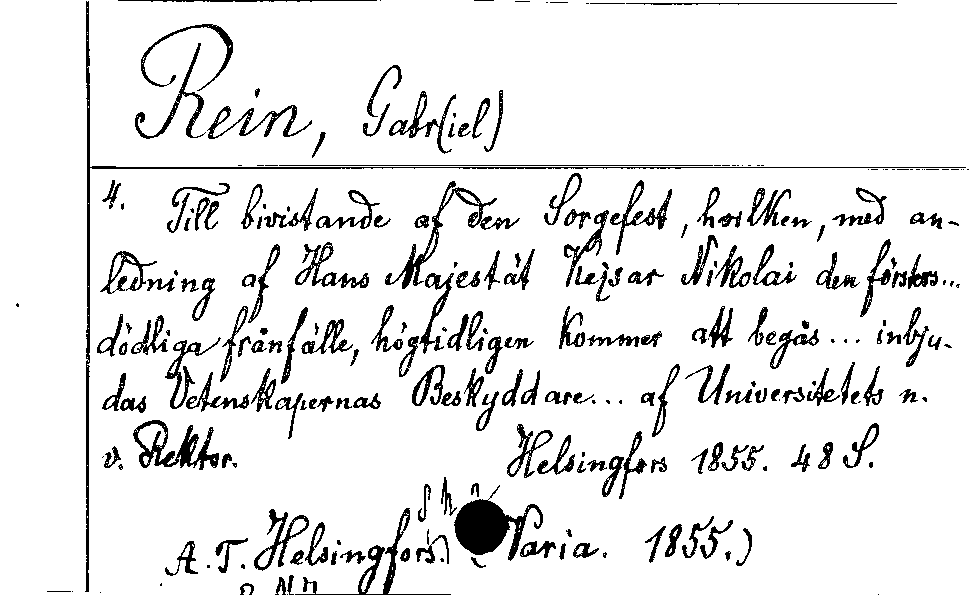 Rein, Gabr(iel)
4. Till bivistande af den Sorgefest, hvilken, med an-
ledning af Hans Majestät Kejsar Nikolai den förstes...
dödliga frånfälle, högtidligen kommer att begås... inbju-
das Vetenskapernas Beskyddare... af Universitetets n.
v. Rektor. Helsingfors 1855. 48 S.
A.T. Helsingfors. Varia. 1855.)